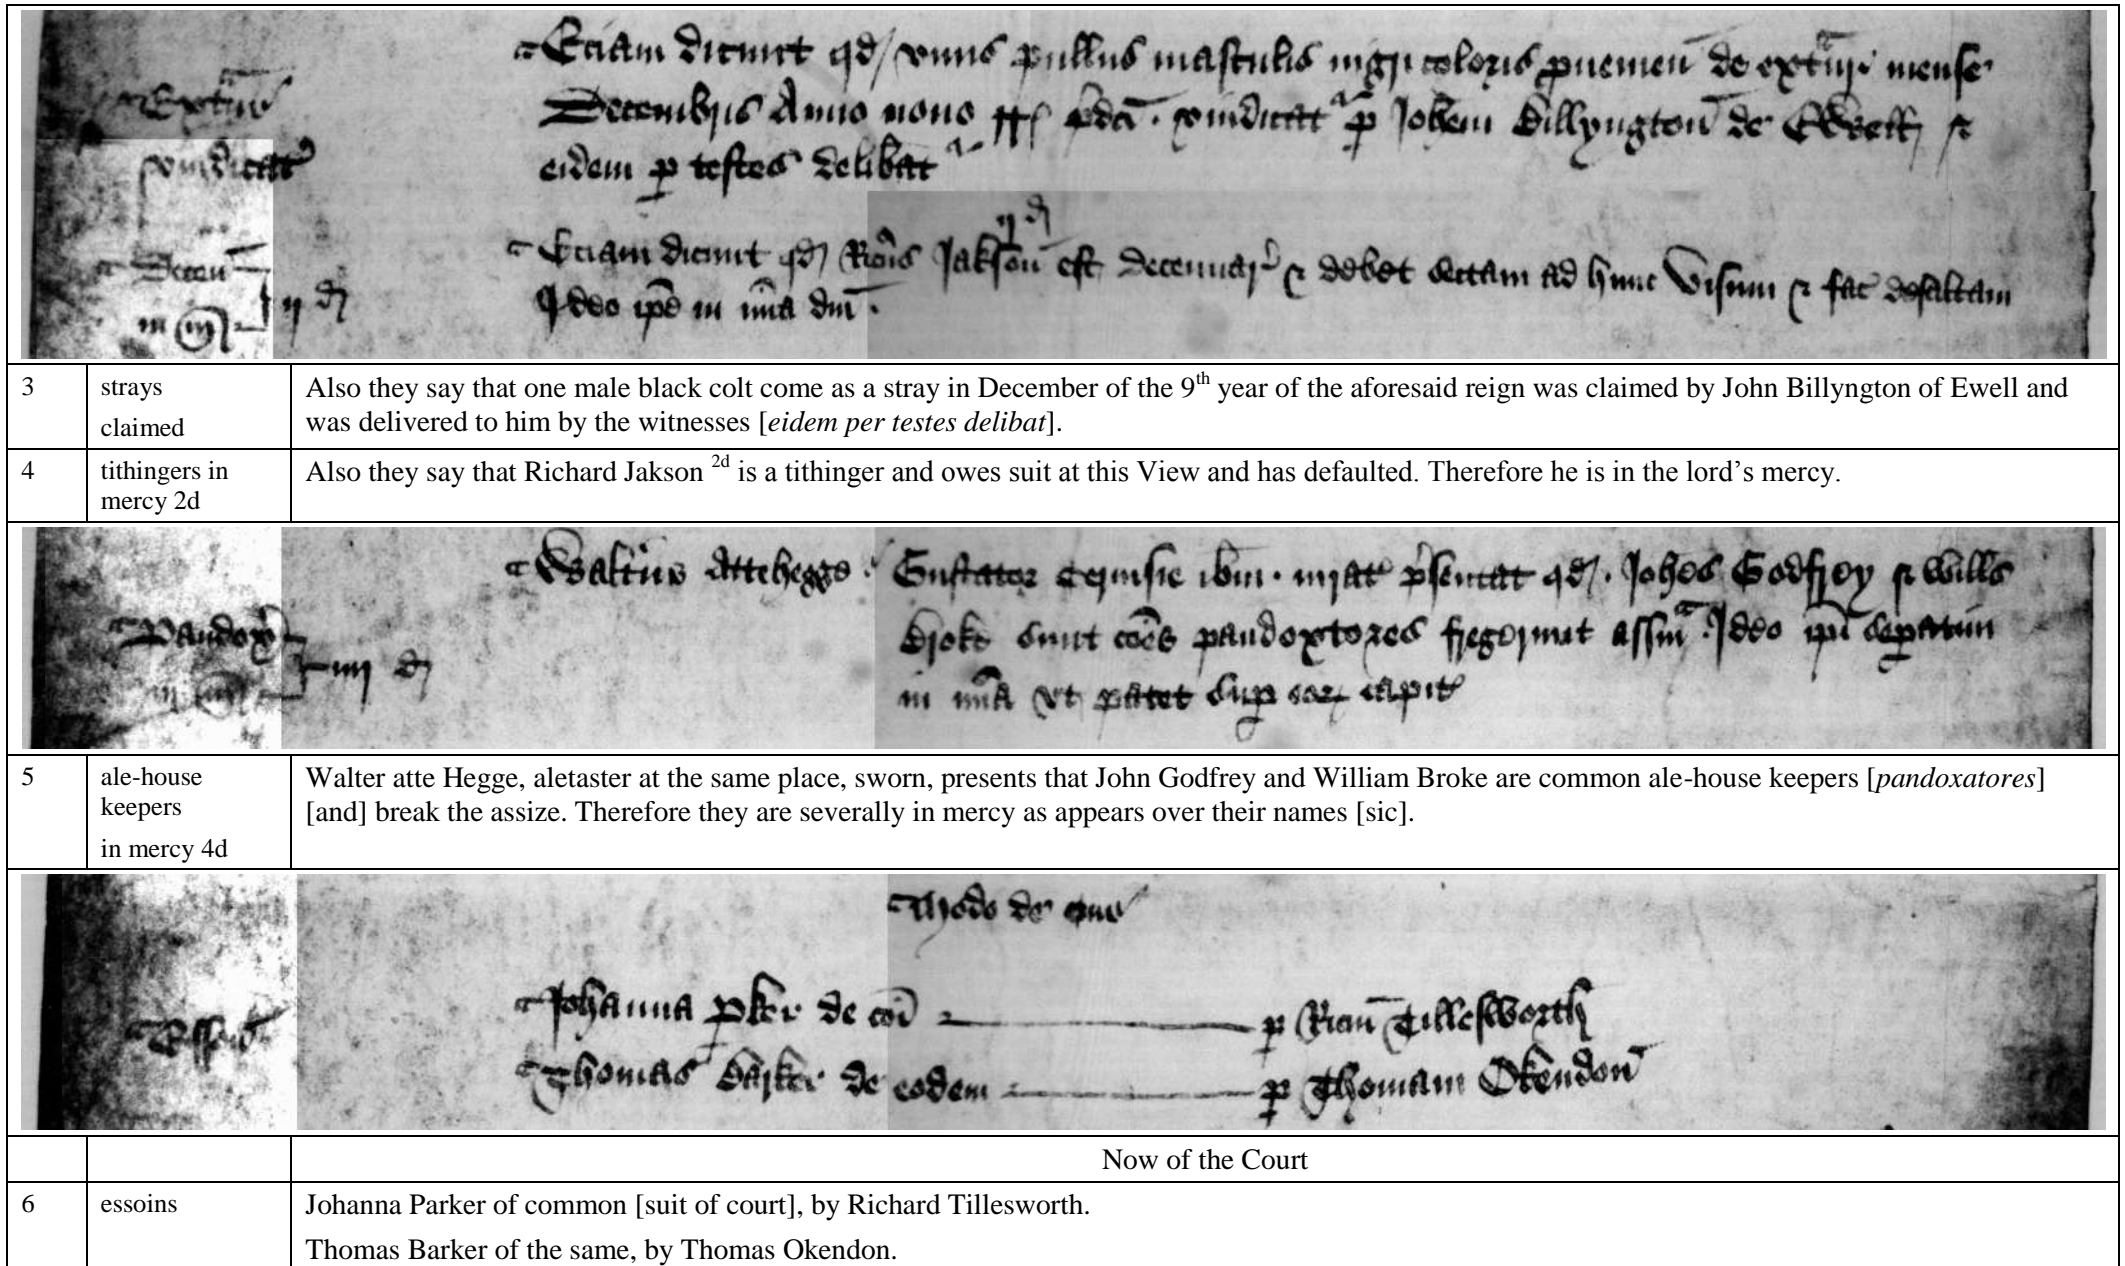 Extur
Eciam dicunt qd unus pullus masculus nigri coloris puenien de extur mense
Decembris Anno nono RR pdci vindicat p Johem Billyngton de Ewell &
vindicat
eidem p testes delibat
ij d
Decen
Eciam dicunt qd Ricus Jakson est decennar & debet sectam ad hunc Visum & fac defaltam
in m ij d
Ideo ipe in mia dni
3 strays Also they say that one male black colt come as a stray in December of the 9th year of the aforesaid reign was claimed by John Billyngton of Ewell and
claimed was delivered to him by the witnesses [eidem per testes delibat].
4 tithingers in Also they say that Richard Jakson 2d is a tithinger and owes suit at this View and has defaulted. Therefore he is in the lord’s mercy.
mercy 2d
Waltus Attehegge Gustator Cervisie ibm jurat psentat qd Johes Godfrey & Wills
Pandox
Broke sunt coes pandoxatores fregerunt assm Ideo ipi sepatim
in m iiij d
in mia ut patet sup eor capit
5 ale-house Walter atte Hegge, aletaster at the same place, sworn, presents that John Godfrey and William Broke are common ale-house keepers [pandoxatores]
keepers [and] break the assize. Therefore they are severally in mercy as appears over their names [sic].
in mercy 4d
Modo de Cur
Esson
Johanna Pker de coi p Ricm Tillesworth
Thomas Barker de eodem p Thomam Okendon
Now of the Court
6 essoins Johanna Parker of common [suit of court], by Richard Tillesworth.
Thomas Barker of the same, by Thomas Okendon.